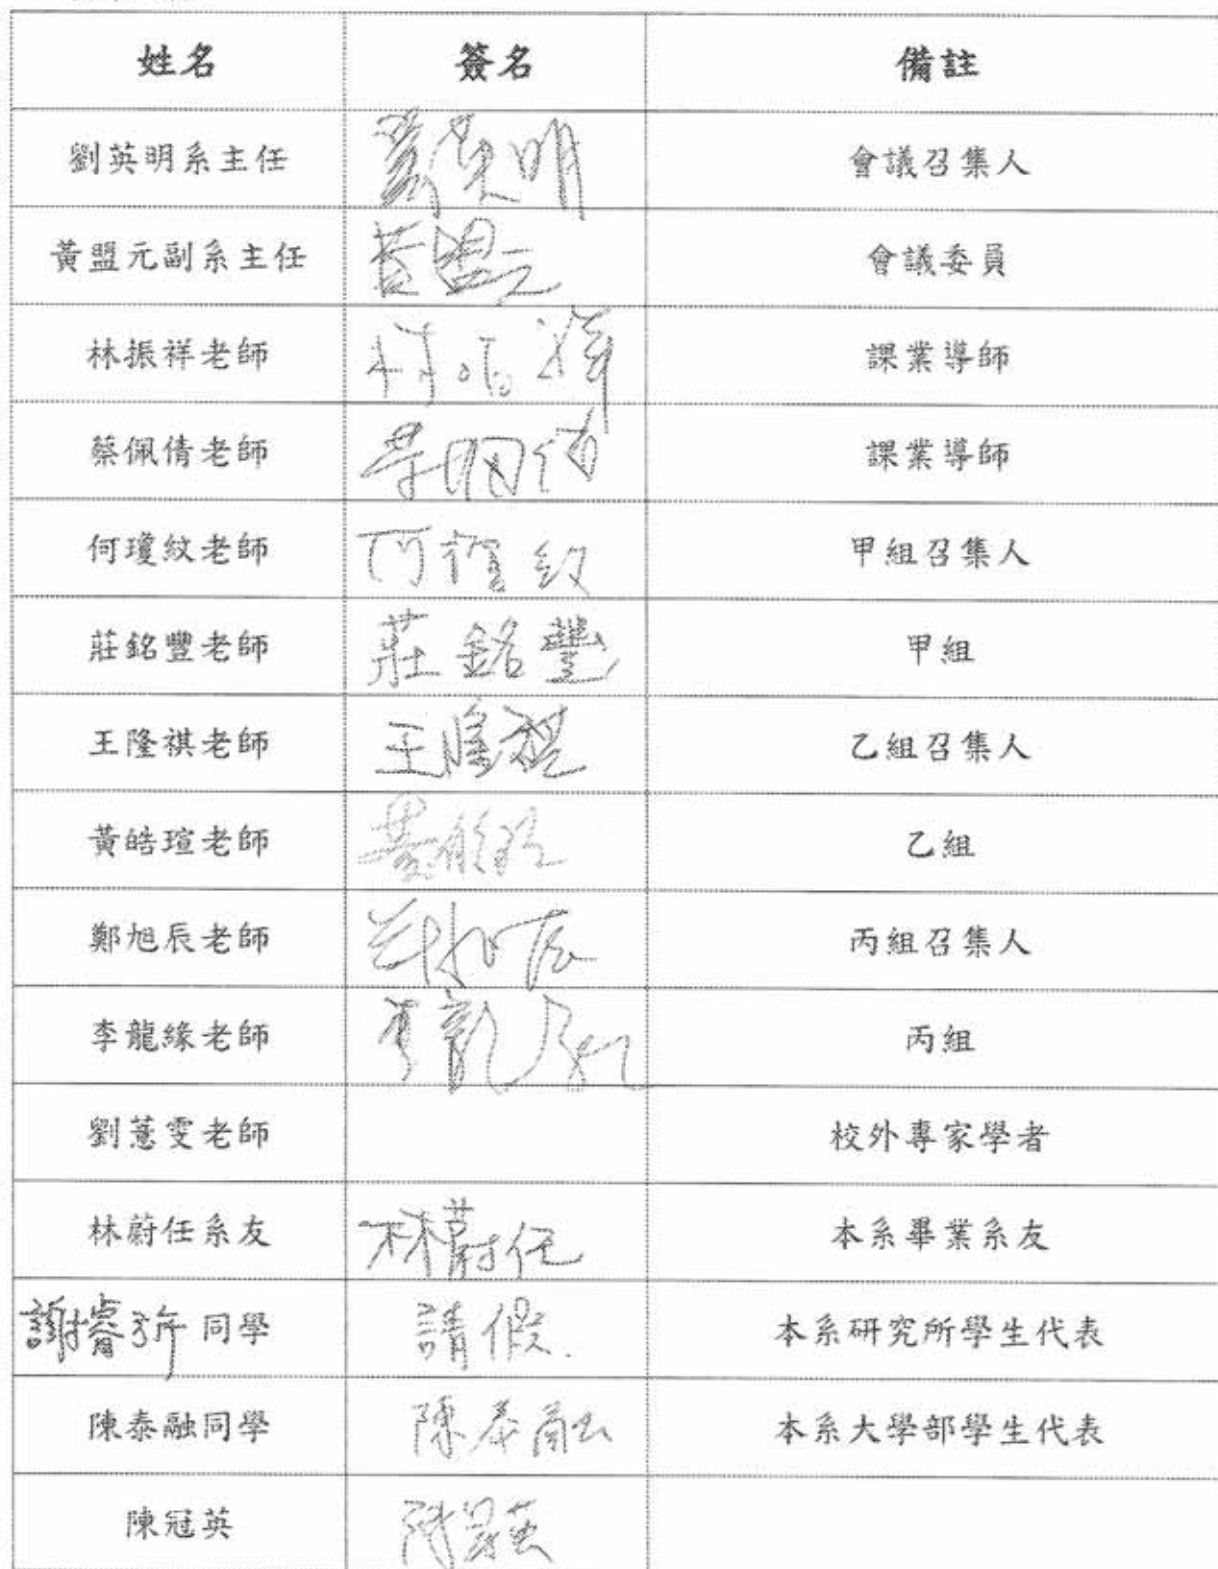 姓名 簽名 備註
劉英明系主任 劉英明 會議召集人
黃盟元副系主任 黃盟元 會議委員
林振祥老師 課業導師
蔡佩倩老師 課業導師
何瓊紋老師 何瓊紋 甲組召集人
莊銘豐老師 莊銘豐 甲組
王隆祺老師 王隆祺 乙組召集人
黃皓瑄老師 乙組
鄭旭辰老師 丙組召集人
李龍緣老師 李龍緣 丙組
劉薏雯老師 校外專家學者
林蔚任系友 林蔚任 本系畢業系友
謝睿 同學 請假. 本系研究所學生代表
陳泰融同學 陳泰融 本系大學部學生代表
陳冠英 陳冠英